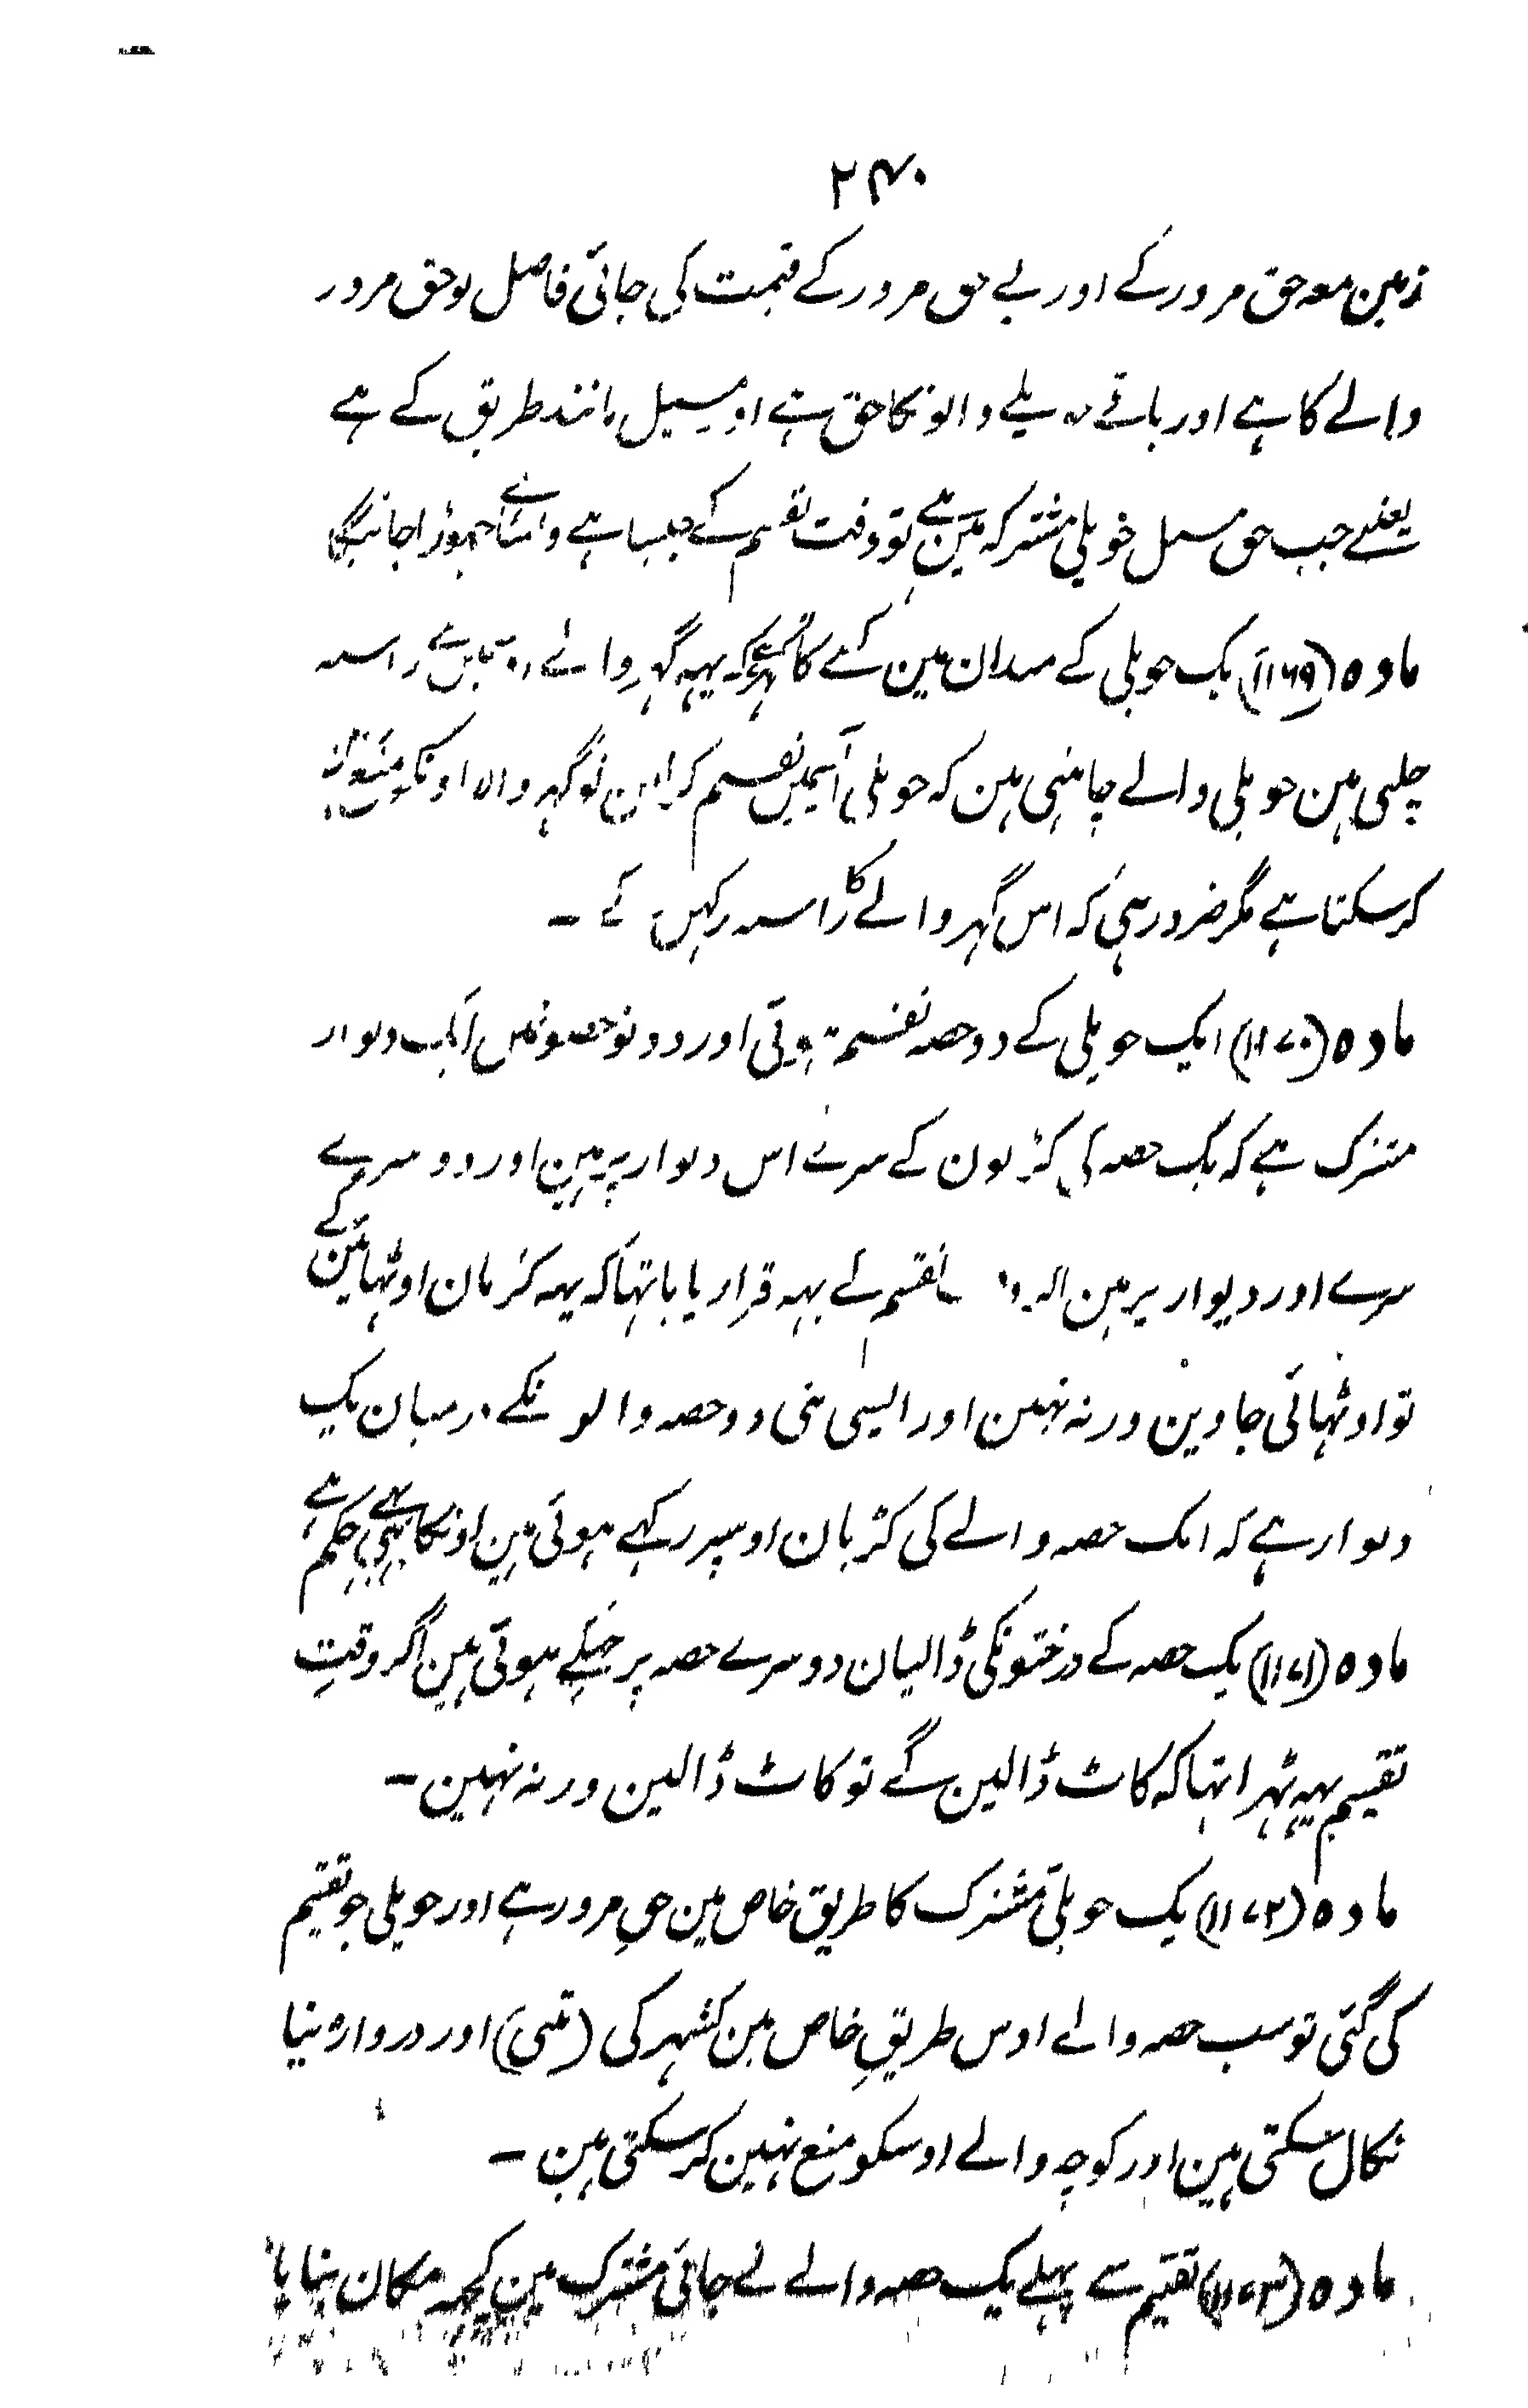 ۲۴۰
زمین معہ حق مرور کے اور بے حق مرور کے قیمت کی جائی فاصل تو حق مرور
والے کا ہے اور باقے والونکا حق ہے اور مسیل مانند طریق کے ہے
یعنے جب حق مسیل حویلی مشترکہ مین ہے تو وقت تقسیم کے جیسا ہے ویسا ہے چہوڑا جائیگا
مادہ (۱۱۶۹) یک حویلی کے میدان مین کسے کا گہر ہے کہ یہہ گہر والے راستہ
چلتی ہین حویلی والے چاہتی ہین کہ حویلی آپسمین تقسیم کر لین تو گہر والا اونکو منع نہ
کرسکتا ہے مگر ضرور ہی کہ اس گہر والے کا راستہ رکہین گے ۔
مادہ (۱۱۷۰) ایک حویلی کے دو حصہ تقسیم ہوئی اور دونو حصونمین ایک دیوار
مشترک ہے کہ یک حصہ کی کڑیون کے سرے اس دیوار پر ہین اور دوسرے
سرے اور دیوار پر ہین اگر وقت تقسیم کے یہہ قرار پایا تہا کہ یہہ کڑیان اوٹہائین گے
تو اوٹہائی جاوین ورنہ نہین اور ایسی ہی دو حصہ والونکے درمیان یک
دیوار ہے کہ ایک حصہ والے کی کڑیان اوسپر رکہے ہوئی ہین اونکا بہی یہی حکم ہے
مادہ (۱۱۷۱) یک حصہ کے درختونکی ڈالیان دوسرے حصہ پر جہکے ہوئی ہین اگر وقتِ
تقسیم یہہ ٹہرا تہا کہ کاٹ ڈالین گے تو کاٹ ڈالین ورنہ نہین ۔
مادہ (۱۱۷۲) یک حویلی مشترک کا طریق خاص مین حقِ مرور ہے اور حویلی جو تقسیم
کی گئی تو سب حصہ والے اوس طریقِ خاص مین کہڑکی (نئی) اور دروازہ نیا
نکال سکتی ہین اور کوچہ والے اوسکو منع نہین کرسکتی ہین ۔
مادہ (۱۱۷۳) تقسیم سے پہلے یک حصہ والے نے جائی مشترک مین کچہہ مکان بنایا